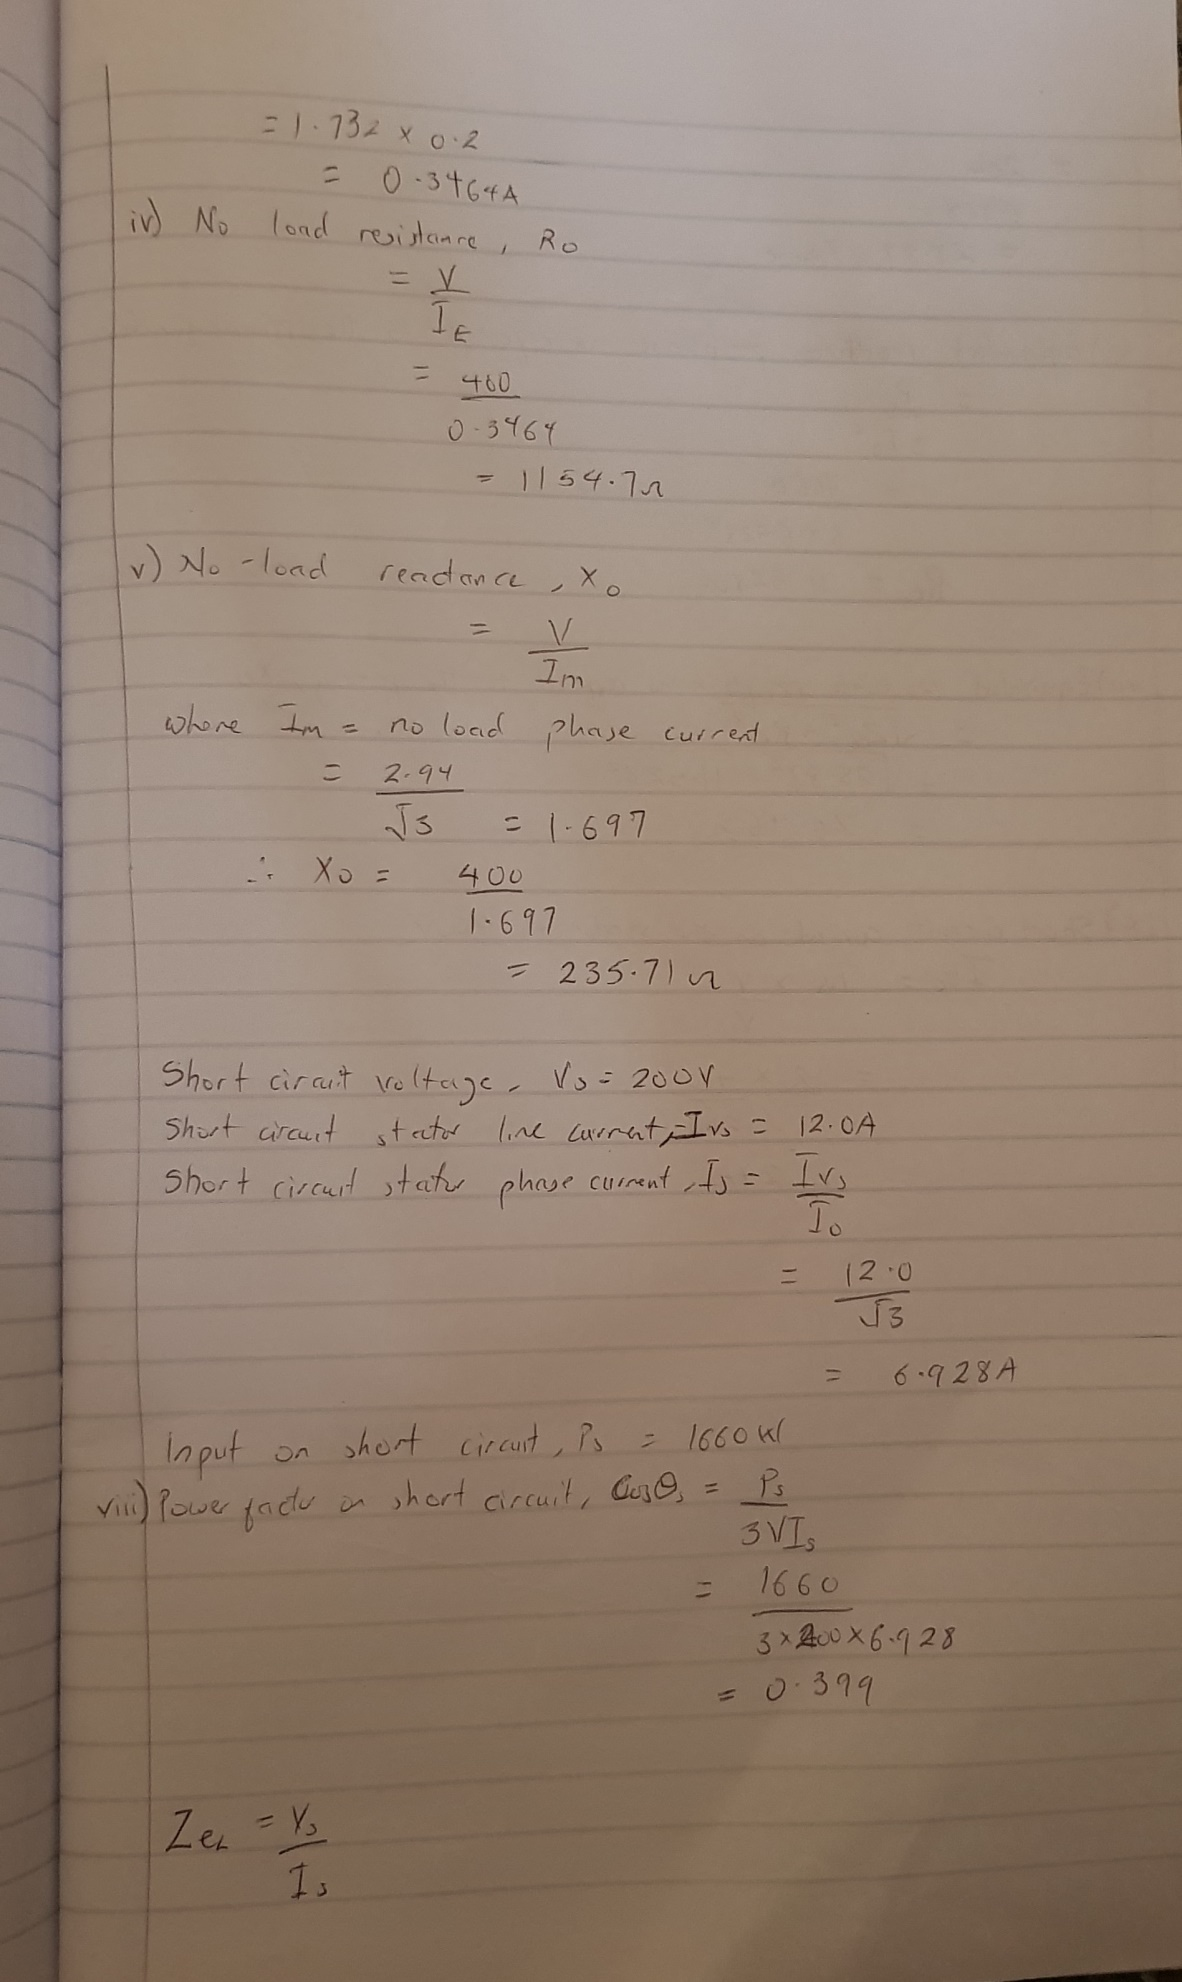 = 1.732 x 0.2
= 0.3464A
iv) No load resistance, Ro
= V
IE
= 400
0.3464
= 1154.7Ω
v) No-load reactance, Xo
= V
Im
where Im = no load phase current
= 2.94
√3 = 1.697
∴ Xo = 400
1.697
= 235.71Ω
Short circuit voltage, Vs = 200V
Short circuit stator line current, Ivs = 12.0A
Short circuit stator phase current, Is = Ivs
Io
= 12.0
√3
= 6.928A
Input on short circuit, Ps = 1660W
viii) Power factor on short circuit, Cosθs = Ps
3VIs
= 1660
3x200x6.928
= 0.399
Zel = Vs
Is